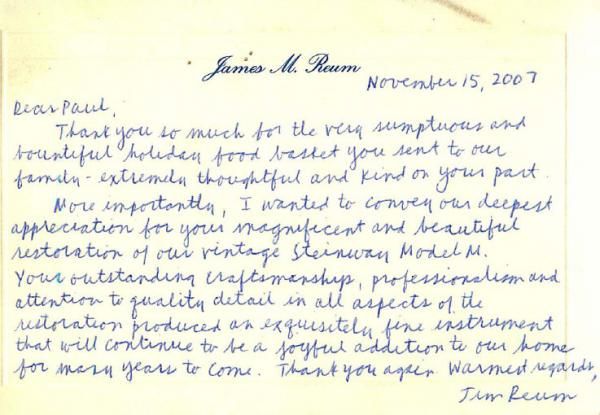 James M. Reum
November 15, 2007
Dear Paul,
Thank you so much for the very sumptuous and
bountiful holiday food basket you sent to our
family - extremely thoughtful and kind on your part.
More importantly, I wanted to convey our deepest
appreciation for your magnificent and beautiful
restoration of our vintage Steinway Model M.
Your outstanding craftsmanship, professionalism and
attention to quality detail in all aspects of the
restoration produced an exquisitely fine instrument
that will continue to be a joyful addition to our home
for many years to come. Thank you again. Warmest regards,
Jim Reum